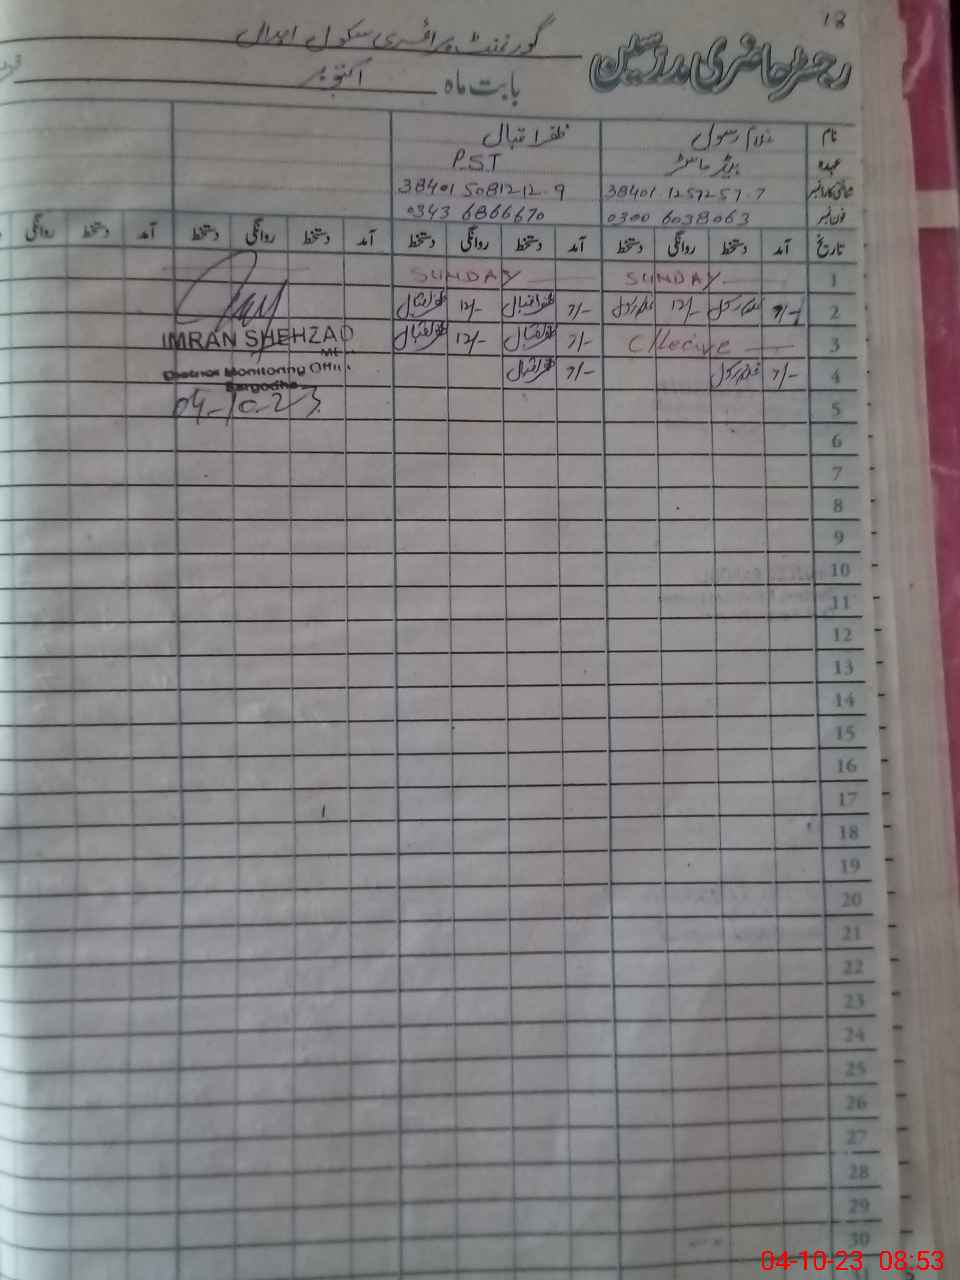 18
رجسٹر حاضری مدرسین گورنمنٹ پرائمری سکول
بابت ماہ اکتوبر
نام غلام رسول ظفر اقبال
عہدہ ہیڈ ماسٹر P.S.T
شناختی کارڈ نمبر 38401 1257257.7 38401 5081212.9
فون نمبر 0300 6038063 0343 6866670
تاریخ آمد دستخط روانگی دستخط آمد دستخط روانگی دستخط آمد دستخط روانگی دستخط آمد دستخط روانگی
1 SUNDAY SUNDAY
2 7/- غلام رسول 12/- غلام رسول 7/- ظفر اقبال 12/- ظفر اقبال
3 C/Leave 7/- ظفر اقبال 12/- ظفر اقبال
IMRAN SHEHZAD
4 7/- غلام رسول 7/- ظفر اقبال
District Monitoring Officer
Sargodha
04-10-23
5
6
7
8
9
10
11
12
13
14
15
16
17
18
19
20
21
22
23
24
25
26
27
28
29
30
04-10-23 08:53